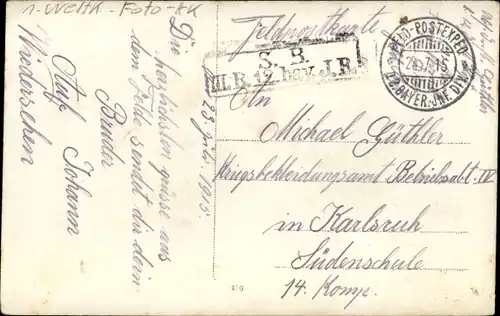 1. Weltk. - Foto-AK
Feldpostkarte
S. B.
III. R. 12. bay. J. R.
FELD-POSTEXPED.
BAYER. INF. DIV.
Die herzlichsten grüsse aus
dem Felde sendet dir dein
Bruder
Johann
Auf
Wiedersehen
28 Juli 1915
An
Michael Güthler
Kriegsbekleidungsamt Betriebsabt. IV
in Karlsruh
Südenschule
14. Komp.